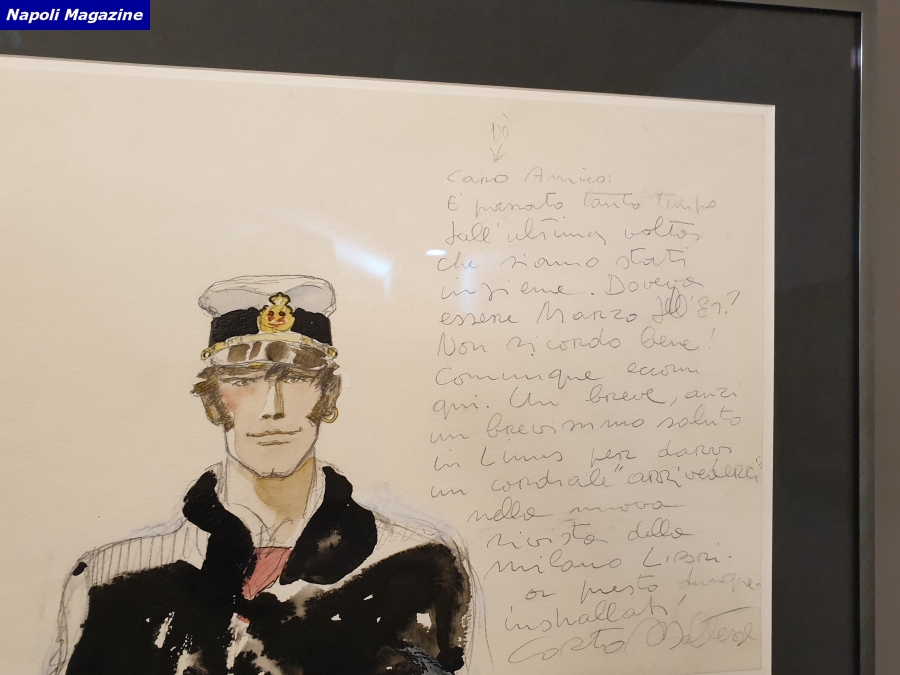 Napoli Magazine
Caro Amico:
E' passato tanto tempo
dall'ultima volta
che siamo stati
insieme. Doveva
essere Marzo dell'81?
Non ricordo bene!
Comunque eccomi
qui. Un breve, anzi
un brevissimo saluto
in Linus per darvi
un cordiale "arrivederci"
nella nuova
rivista della
Milano Libri.
a presto dunque.
inshallah!
Corto Maltese